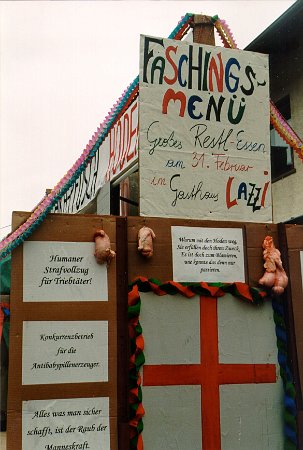 FASCHINGS-
MENÜ
Großes Restl-Essen
am 31. Februar
im Gasthaus
LAZZI
HODEN
Humaner
Strafvollzug
für Triebtäter!
Warum mit den Hoden weg,
Sie erfüllen doch ihren Zweck.
Es ist doch zum Blamieren,
wie konnte das denn nur
passieren.
Konkurrenzbetrieb
für die
Antibabypillenerzeuger.
Alles was man sicher
schafft, ist der Raub der
Manneskraft.